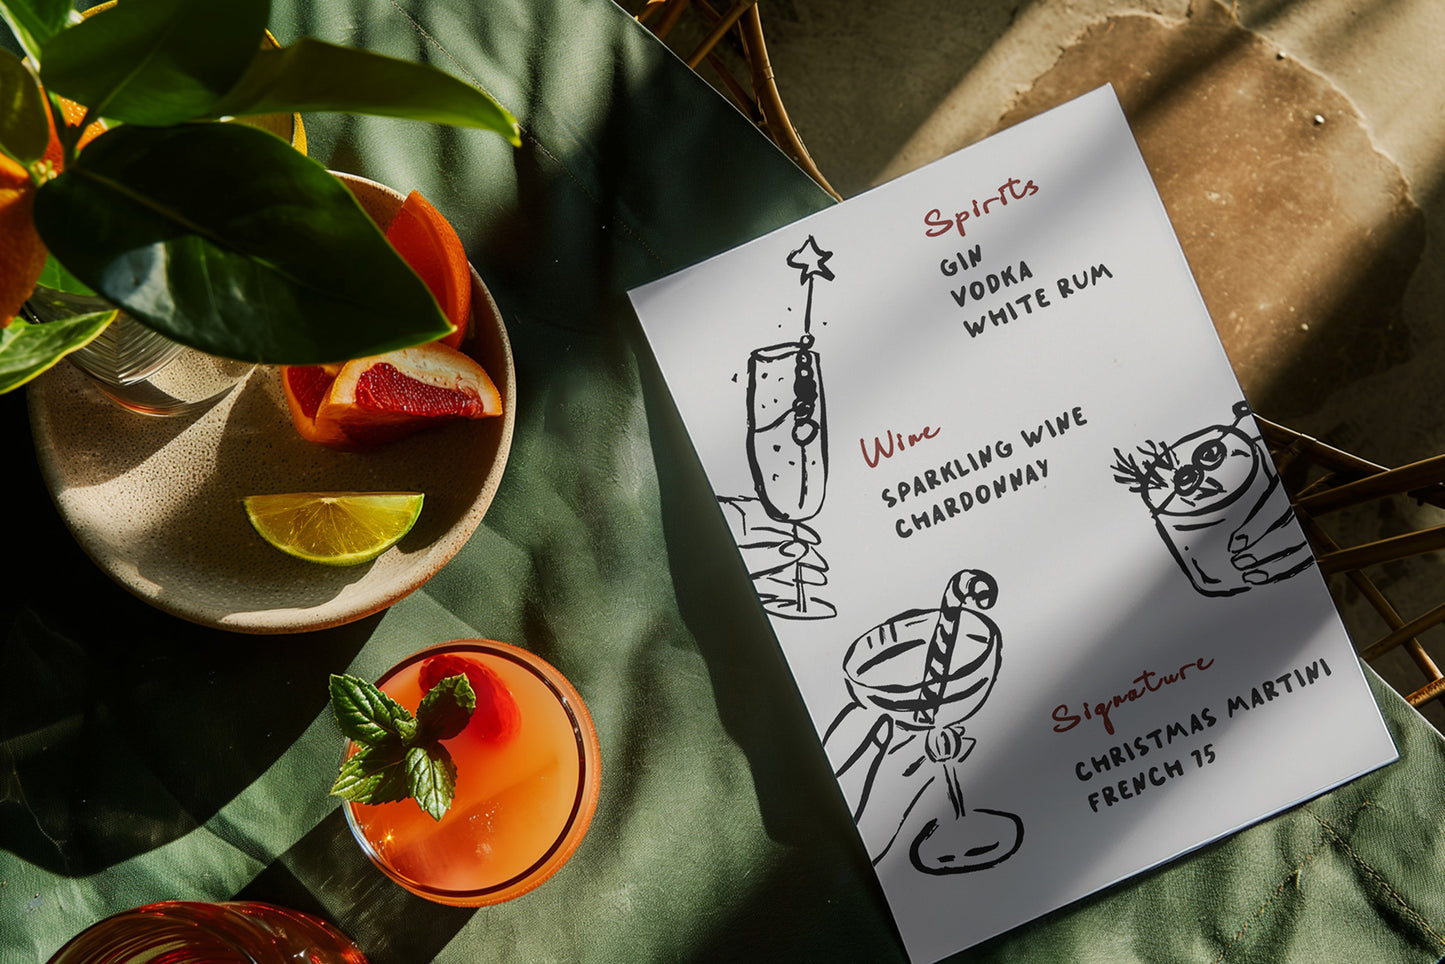 Spirits
GIN
VODKA
WHITE RUM
Wine
SPARKLING WINE
CHARDONNAY
Signature
CHRISTMAS MARTINI
FRENCH 75